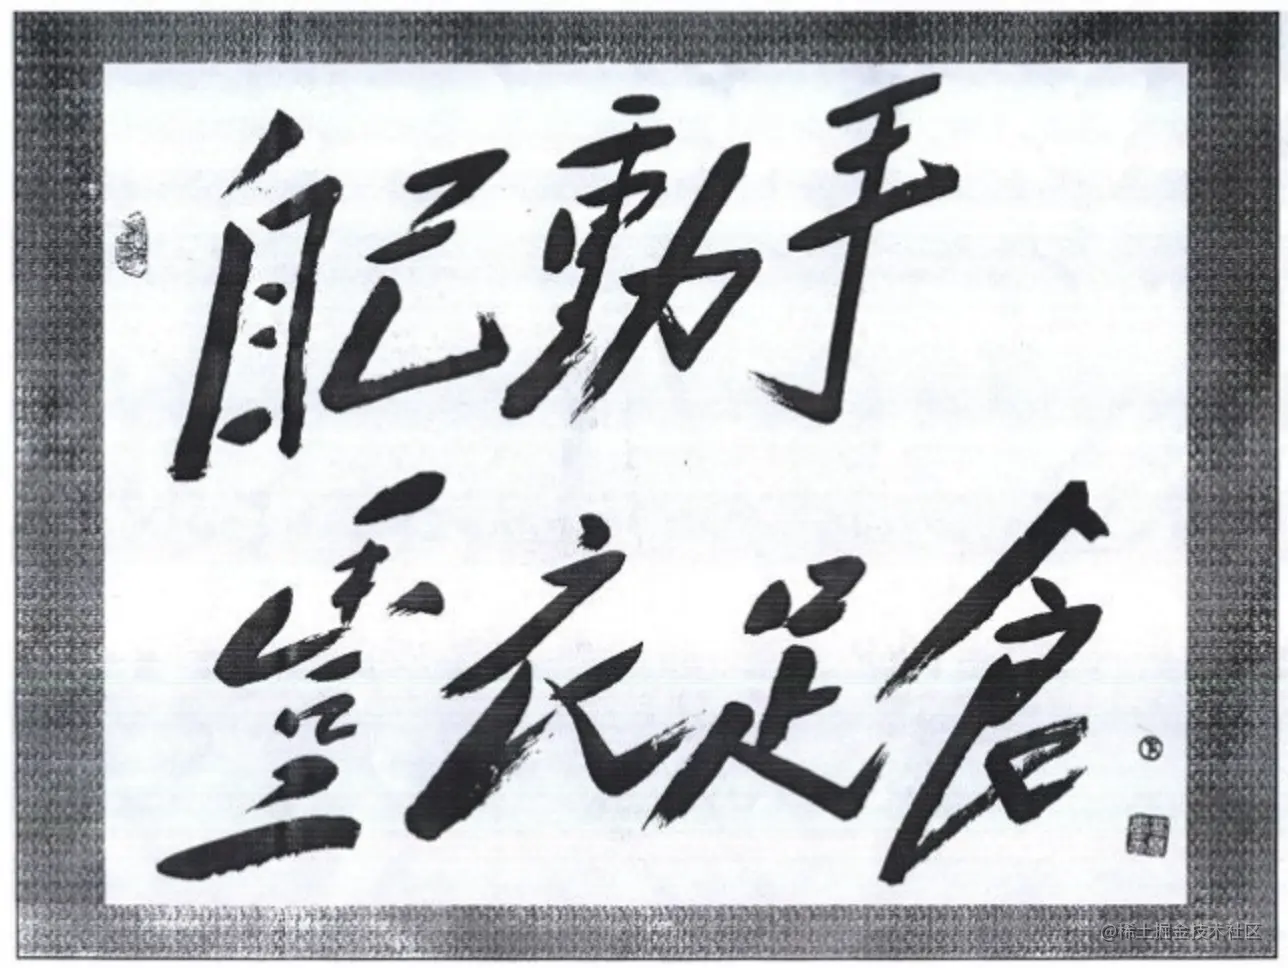 自己動手
豐衣足食
@稀土掘金技术社区